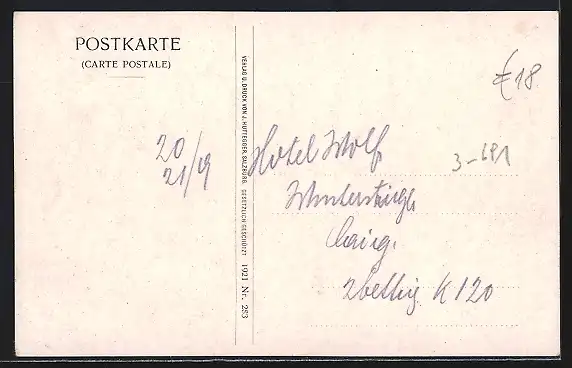 POSTKARTE
(CARTE POSTALE)
20
21/9
VERLAG U. DRUCK VON J. HUTTEGGER, SALZBURG. GESETZLICH GESCHÜTZT 1921 Nr. 253
€18
3-691
Hotel Wolf,
K 120